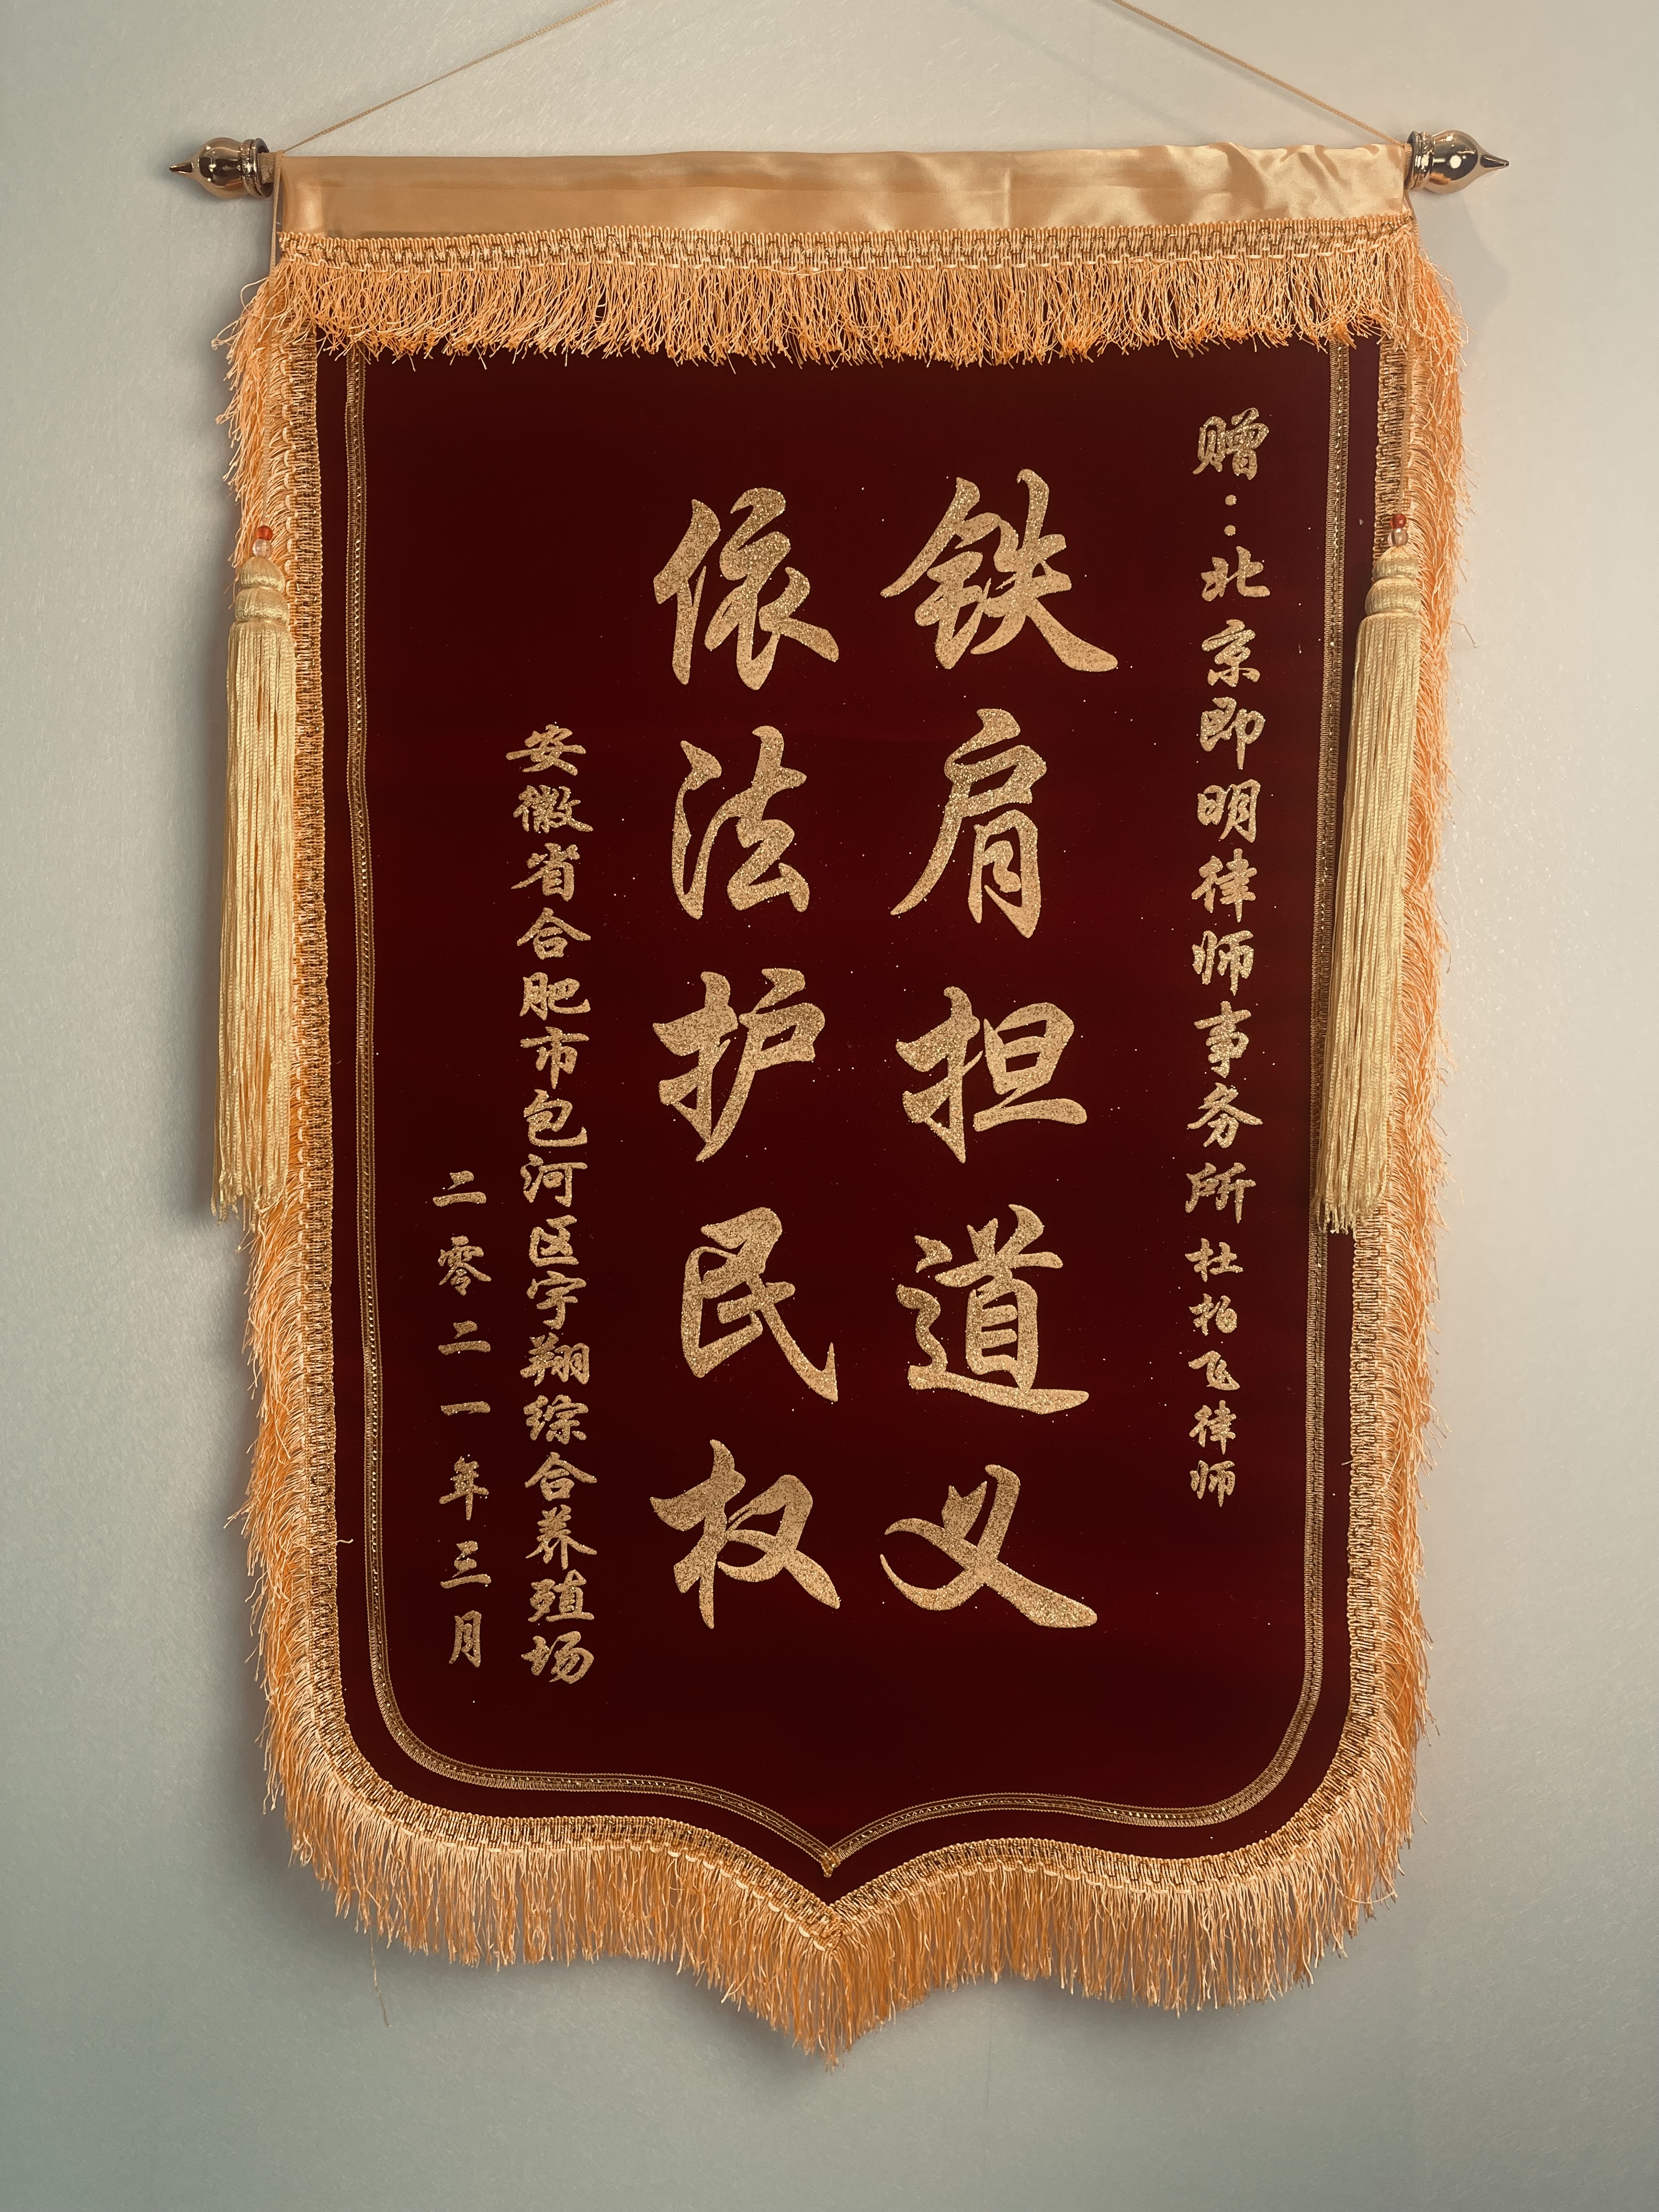 赠：北京即明律师事务所杜柏飞律师
铁肩担道义
依法护民权
安徽省合肥市包河区宇翔综合养殖场
二零二一年三月